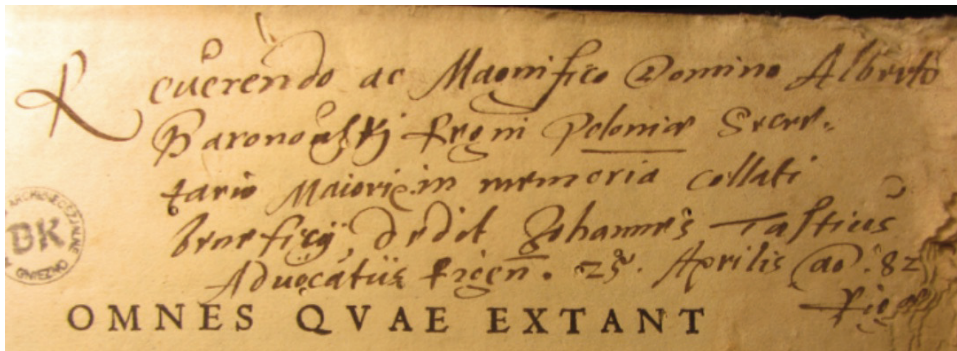 Reuerendo ac Magnifico Domino Alberto
Baronouskj Regni Poloniæ Secre-
tario Maiori in memoria collati
beneficij, dedit Johannes Tastius
Aduocatus Rigen. 23. Aprilis ao. 82
Rigæ
BK
GNIEZNO
OMNES QVAE EXTANT